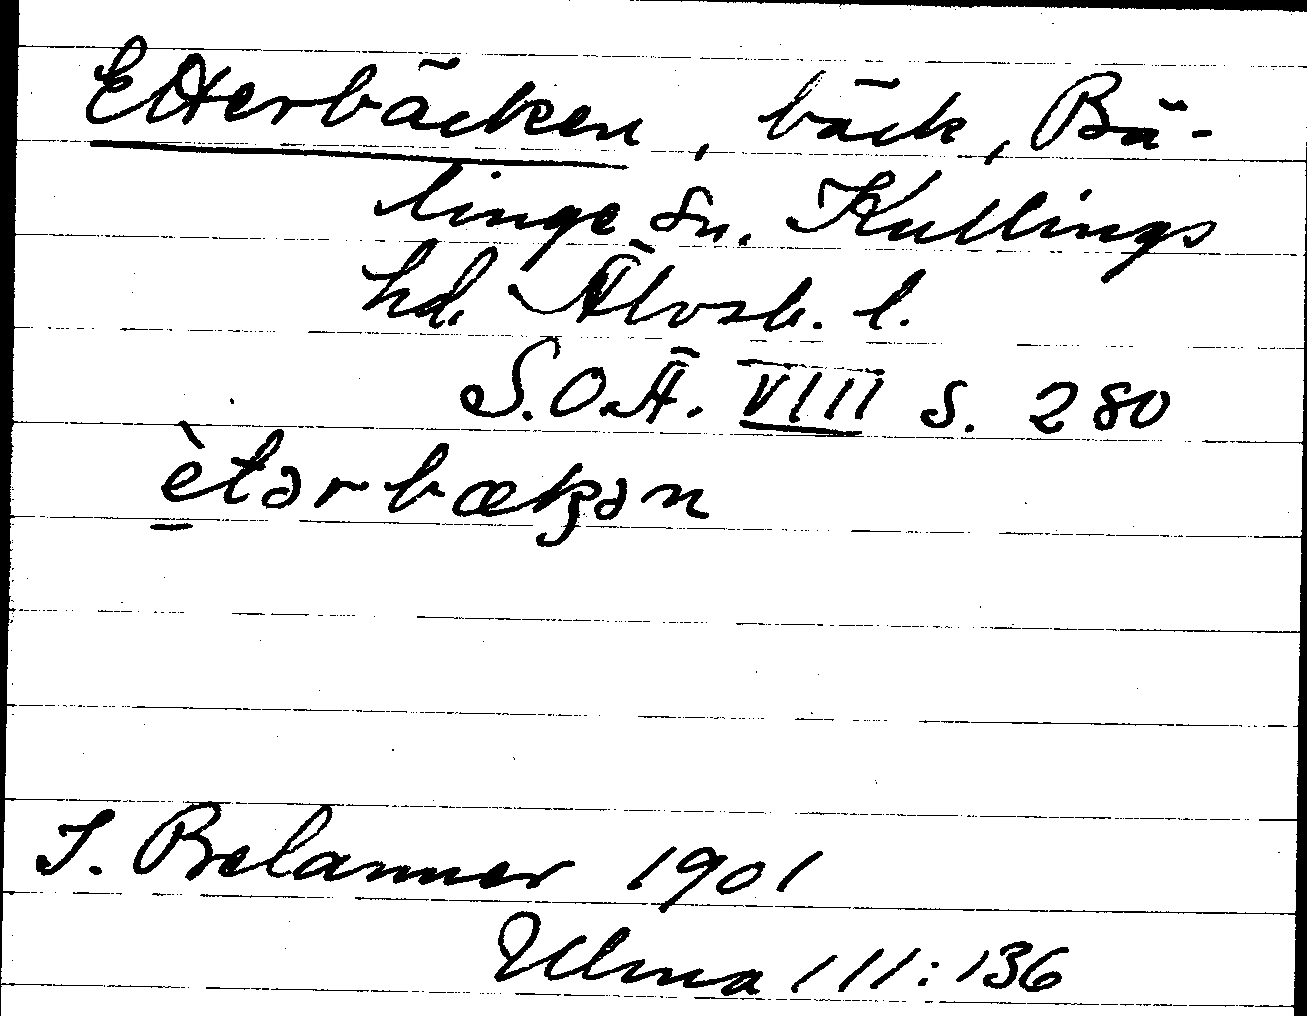 Etterbäcken, bäck, Bä-
linge sn. Kullings
hd. Älvsb. l.
S.O.Ä. VIII s. 280
ètərbækən
J. Belanner 1901
Ulma 111:136